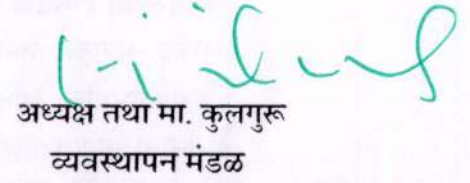 अध्यक्ष तथा मा. कुलगुरू
व्यवस्थापन मंडळ